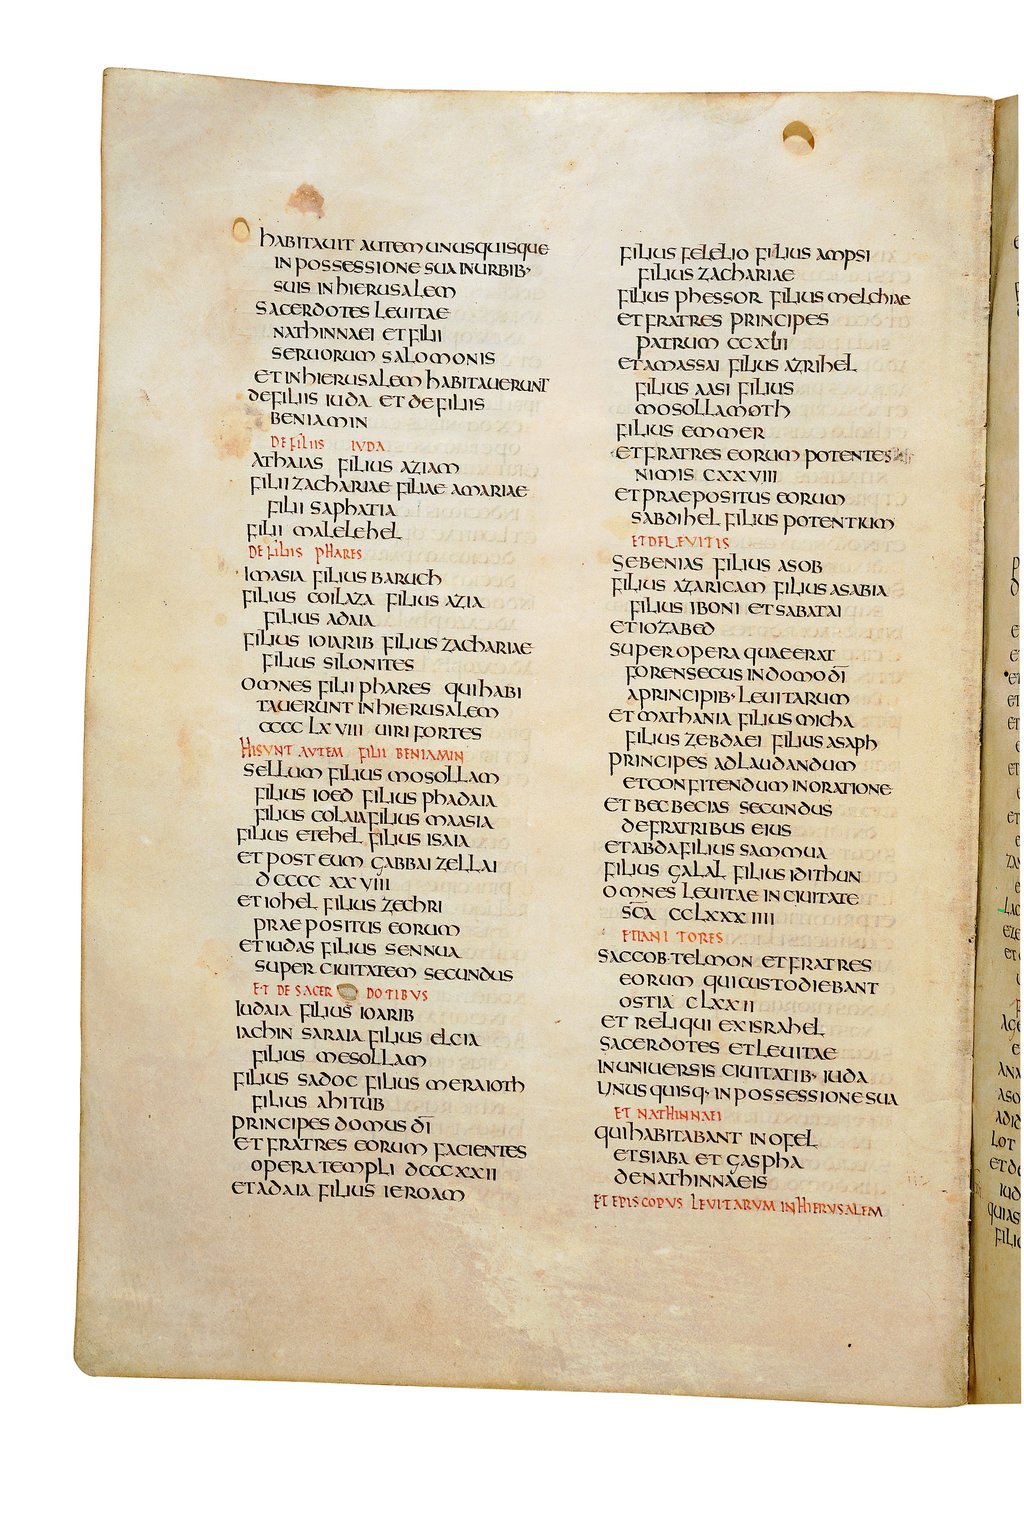 habitauit autem unusquisque
in possessione sua in urbib·
suis in hierusalem
sacerdotes leuitae
nathinnaei et filii
seruorum salomonis
et in hierusalem habitauerunt
de filiis iuda et de filiis
beniamin
DE FILIIS IUDA
athaias filius aziam
filii zachariae filiae amariae
filii saphatia
filii malelehel
DE FILIIS PHARES
imasia filius baruch
filius coilaza filius azia
filius adaia
filius ioiarib filius zachariae
filius silonites
omnes filii phares qui habi
tauerunt in hierusalem
cccc lx viii uiri fortes
HI SVNT AVTEM FILII BENIAMIN
sellum filius mosollam
filius ioed filius phadaia
filius colaia filius maasia
filius etehel filius isaia
et post eum gabbai zellai
dcccc xx viii
et iohel filius zechri
praepositus eorum
et iudas filius sennua
super ciuitatem secundus
ET DE SACER DOTIBVS
iudaia filius ioarib
iachin saraia filius elcia
filius mesollam
filius sadoc filius meraioth
filius ahitub
principes domus d̄ī
et fratres eorum facientes
opera templi dcccxxii
et adaia filius ieroam
filius felelio filius ampsi
filius zachariae
filius phessor filius melchiae
et fratres principes
patrum ccxlii
et amassai filius azrihel
filius aasi filius
mosollamoth
filius emmer
et fratres eorum potentes
nimis cxxviii
et praepositus eorum
sabdihel filius potentium
ET DE LEVITIS
sebenias filius asob
filius azaricam filius asabia
filius iboni et sabatai
et iozabed
super opera quae erat
forensecus in domo d̄ī
a principib· leuitarum
et mathania filius micha
filius zebdaei filius asaph
principes ad laudandum
et confitendum in oratione
et becbecias secundus
de fratribus eius
et abda filius sammua
filius galal filius idithun
omnes leuitae in ciuitate
sc̄a cclxxx iiii
ET IANITORES
saccob· telmon et fratres
eorum qui custodiebant
ostia clxxii
et reliqui ex israhel
sacerdotes et leuitae
in uniuersis ciuitatib· iuda
unus quisq· in possessione sua
ET NATHINNAEI
qui habitabant in ofel
et siaba et gaspha
de nathinnaeis
ET EPISCOPVS LEVITARVM IN HIERVSALEM